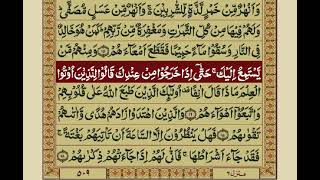 وَاَنْهٰرٌ مِّنْ خَمْرٍ لَّذَّةٍ لِّلشّٰرِبِيْنَ ۚ وَاَنْهٰرٌ مِّنْ عَسَلٍ مُّصَفًّى ؕ
وَلَهُمْ فِيْهَا مِنْ كُلِّ الثَّمَرٰتِ وَمَغْفِرَةٌ مِّنْ رَّبِّهِمْ ؕ كَمَنْ هُوَ خَالِدٌ
فِى النَّارِ وَسُقُوْا مَآءً حَمِيْمًا فَقَطَّعَ اَمْعَآءَهُمْ ۝ وَمِنْهُمْ مَّنْ
يَّسْتَمِعُ اِلَيْكَ ۚ حَتّٰٓى اِذَا خَرَجُوْا مِنْ عِنْدِكَ قَالُوْا لِلَّذِيْنَ اُوْتُوا
الْعِلْمَ مَاذَا قَالَ اٰنِفًا ۟ اُولٰٓئِكَ الَّذِيْنَ طَبَعَ اللّٰهُ عَلٰى قُلُوْبِهِمْ
وَاتَّبَعُوْٓا اَهْوَآءَهُمْ ۝ وَالَّذِيْنَ اهْتَدَوْا زَادَهُمْ هُدًى وَّاٰتٰىهُمْ
تَقْوٰىهُمْ ۝ فَهَلْ يَنْظُرُوْنَ اِلَّا السَّاعَةَ اَنْ تَاْتِيَهُمْ بَغْتَةً ۚ
فَقَدْ جَآءَ اَشْرَاطُهَا ۚ فَاَنّٰى لَهُمْ اِذَا جَآءَتْهُمْ ذِكْرٰىهُمْ ۝
منزل ٦
٥٠٩